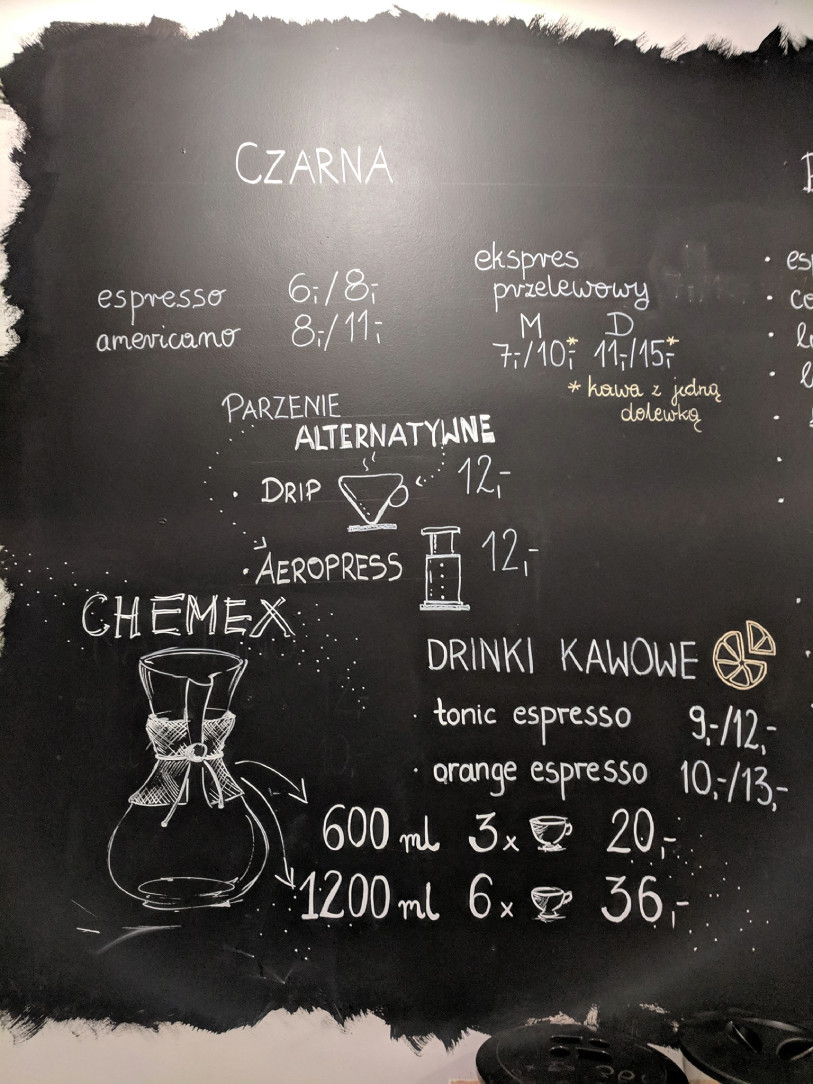 CZARNA
espresso 6,-/8,-
americano 8,-/11,-
ekspres
przelewowy
M D
7,-/10,-* 11,-/15,-*
* kawa z jedną
dolewką
PARZENIE
ALTERNATYWNE
• DRIP 12,-
• AEROPRESS 12,-
CHEMEX
DRINKI KAWOWE
• tonic espresso 9,-/12,-
• orange espresso 10,-/13,-
600 ml 3x 20,-
1200 ml 6x 36,-